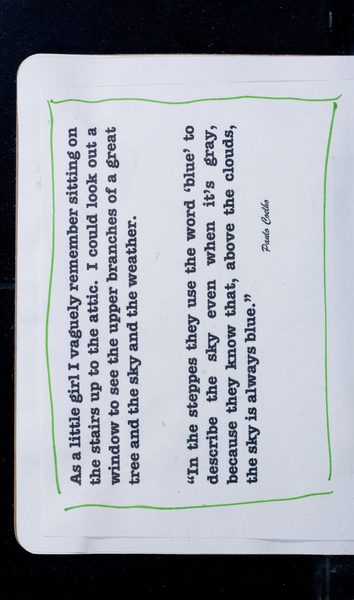 As a little girl I vaguely remember sitting on
the stairs up to the attic. I could look out a
window to see the upper branches of a great
tree and the sky and the weather.
“In the steppes they use the word ‘blue’ to
describe the sky even when it’s gray,
because they know that, above the clouds,
the sky is always blue.”
Paulo Coelho